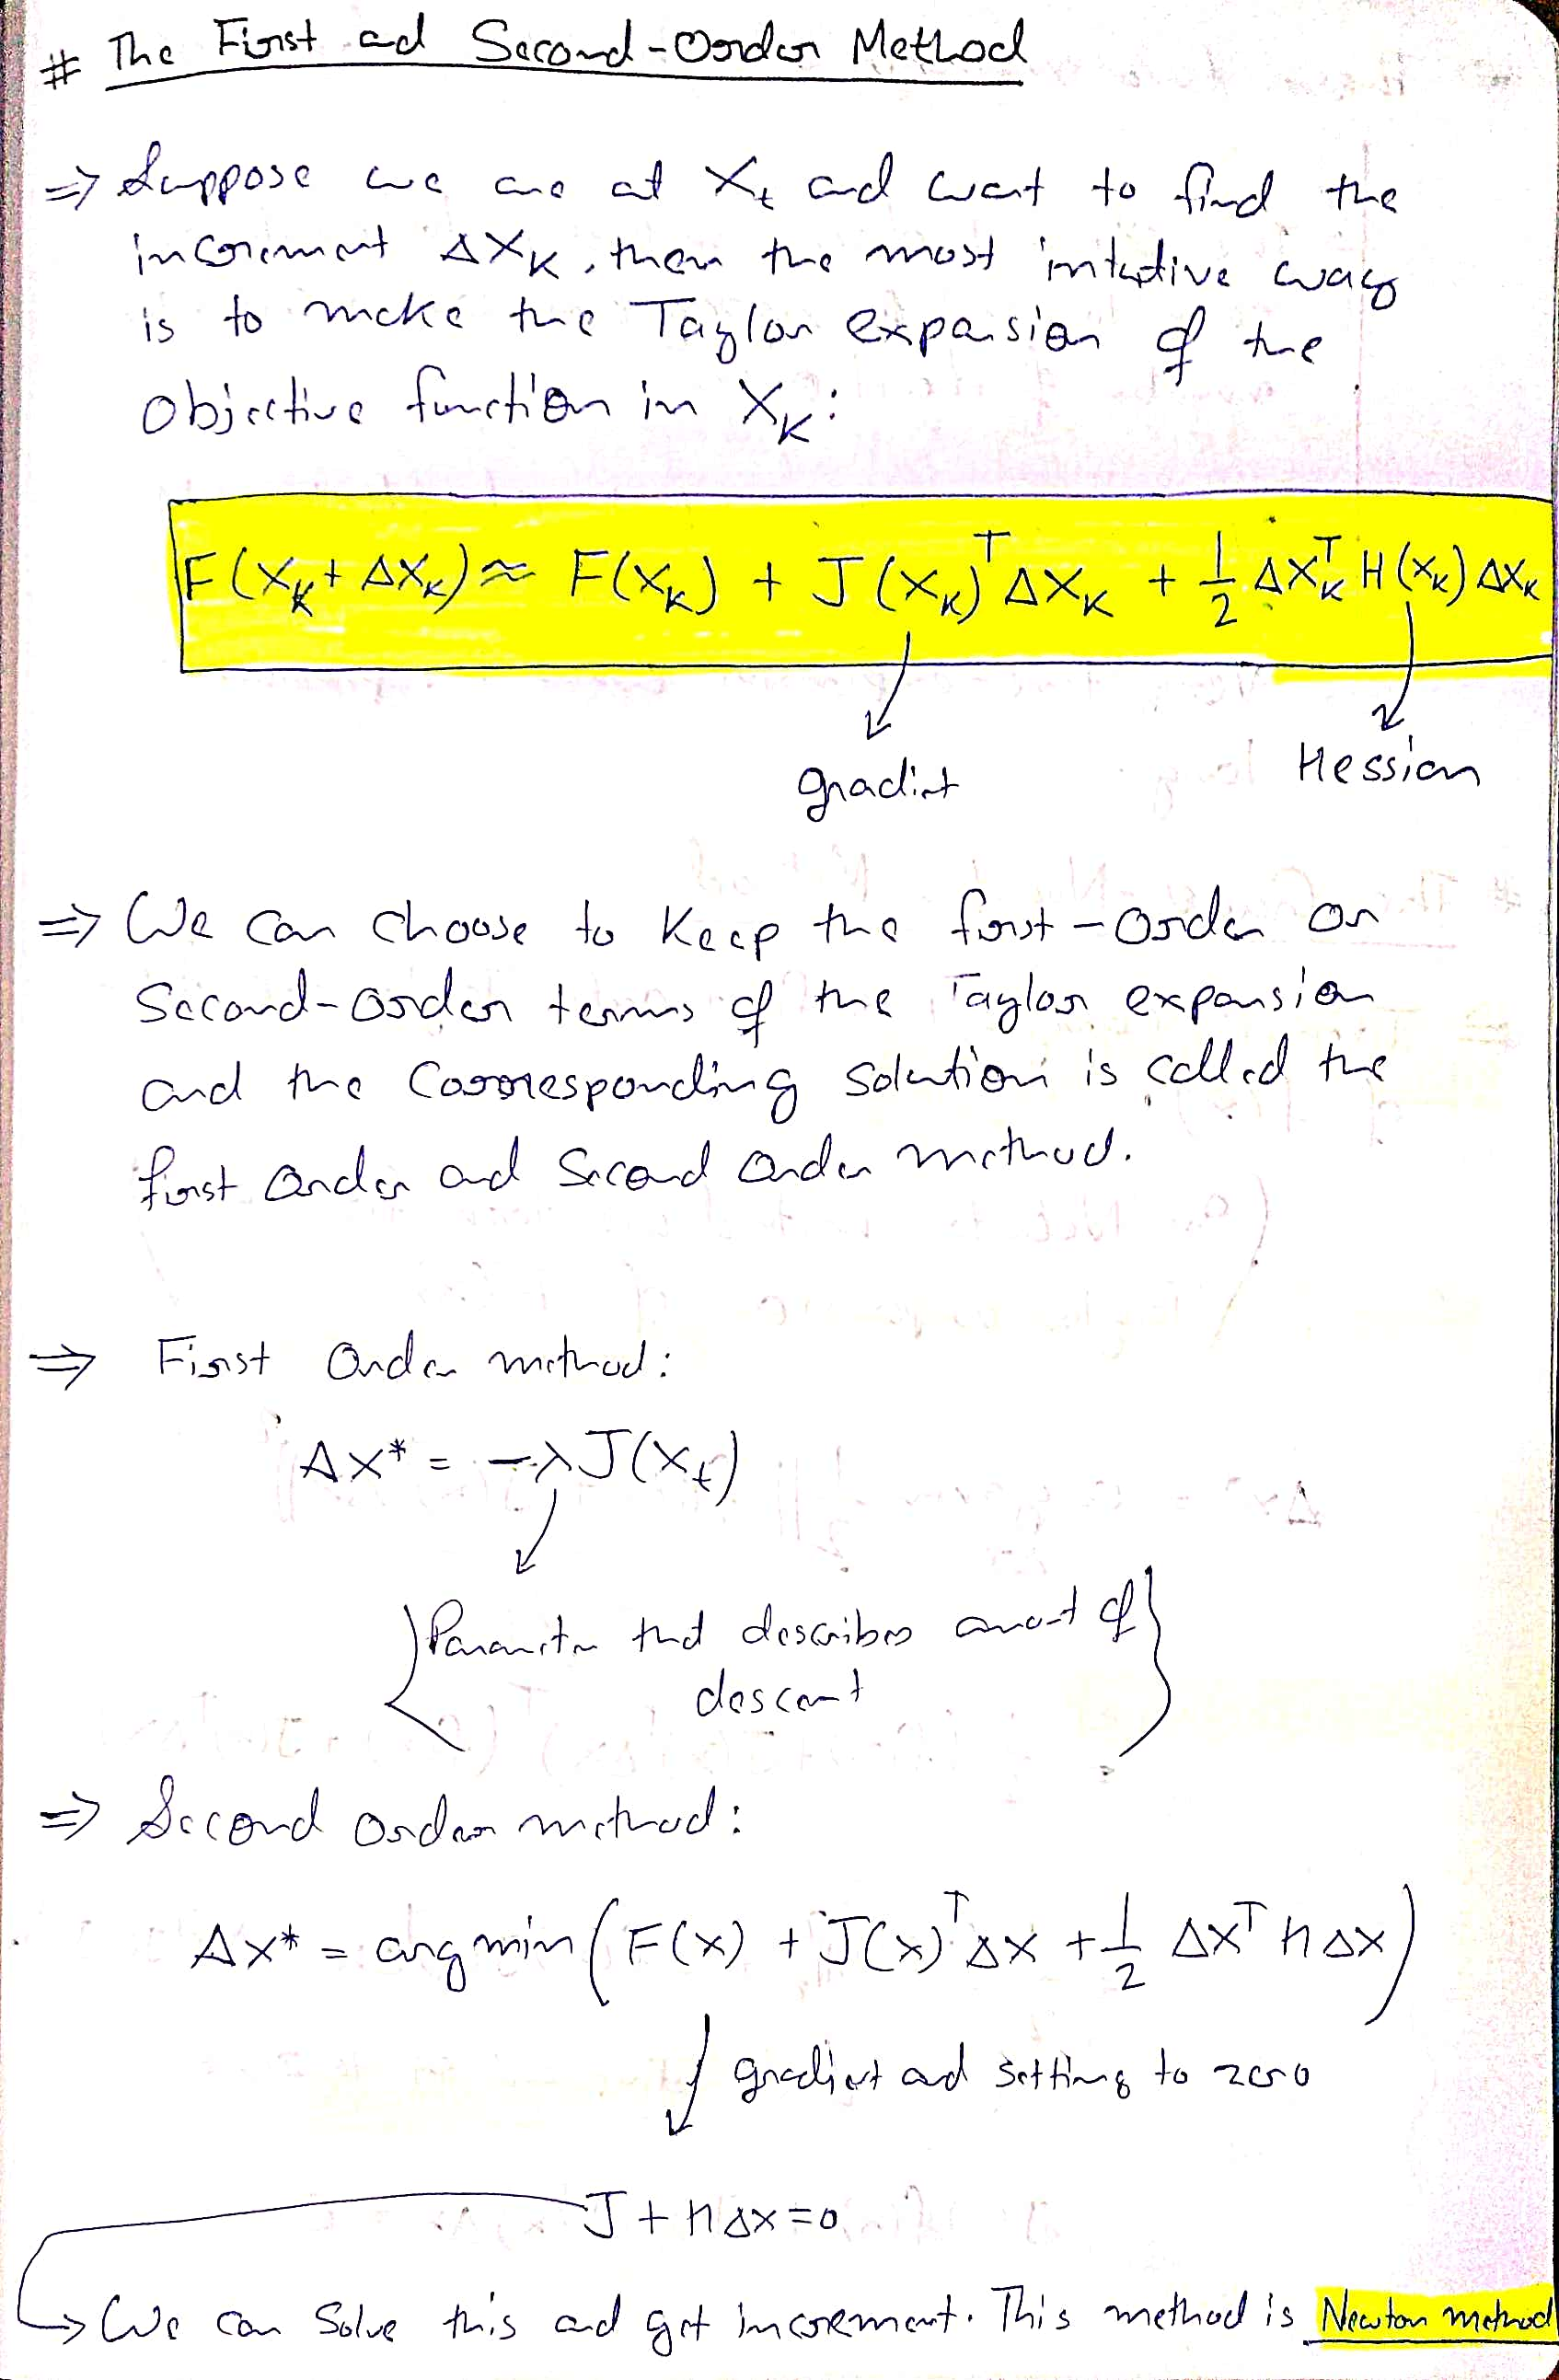 # The First and Second-Order Method
⇒ Suppose we are at Xt and want to find the
increment ΔXK, then the most intutive way
is to make the Taylor expansion of the
objective function in XK:
F(XK + ΔXK) ≈ F(XK) + J(XK)^T ΔXK + 1/2 ΔXK^T H(XK) ΔXK
gradient
Hessian
⇒ We can choose to keep the first-order or
Second-order terms of the Taylor expansion
and the corresponding solution is called the
first order and second order method.
⇒ First Order method:
ΔX* = -λJ(Xt)
Parameter that describes amount of
descent
⇒ Second order method:
ΔX* = argmin(F(x) + J(x)^T Δx + 1/2 Δx^T H Δx)
gradient and setting to zero
J + HΔx = 0
We can solve this and get increment. This method is Newton method